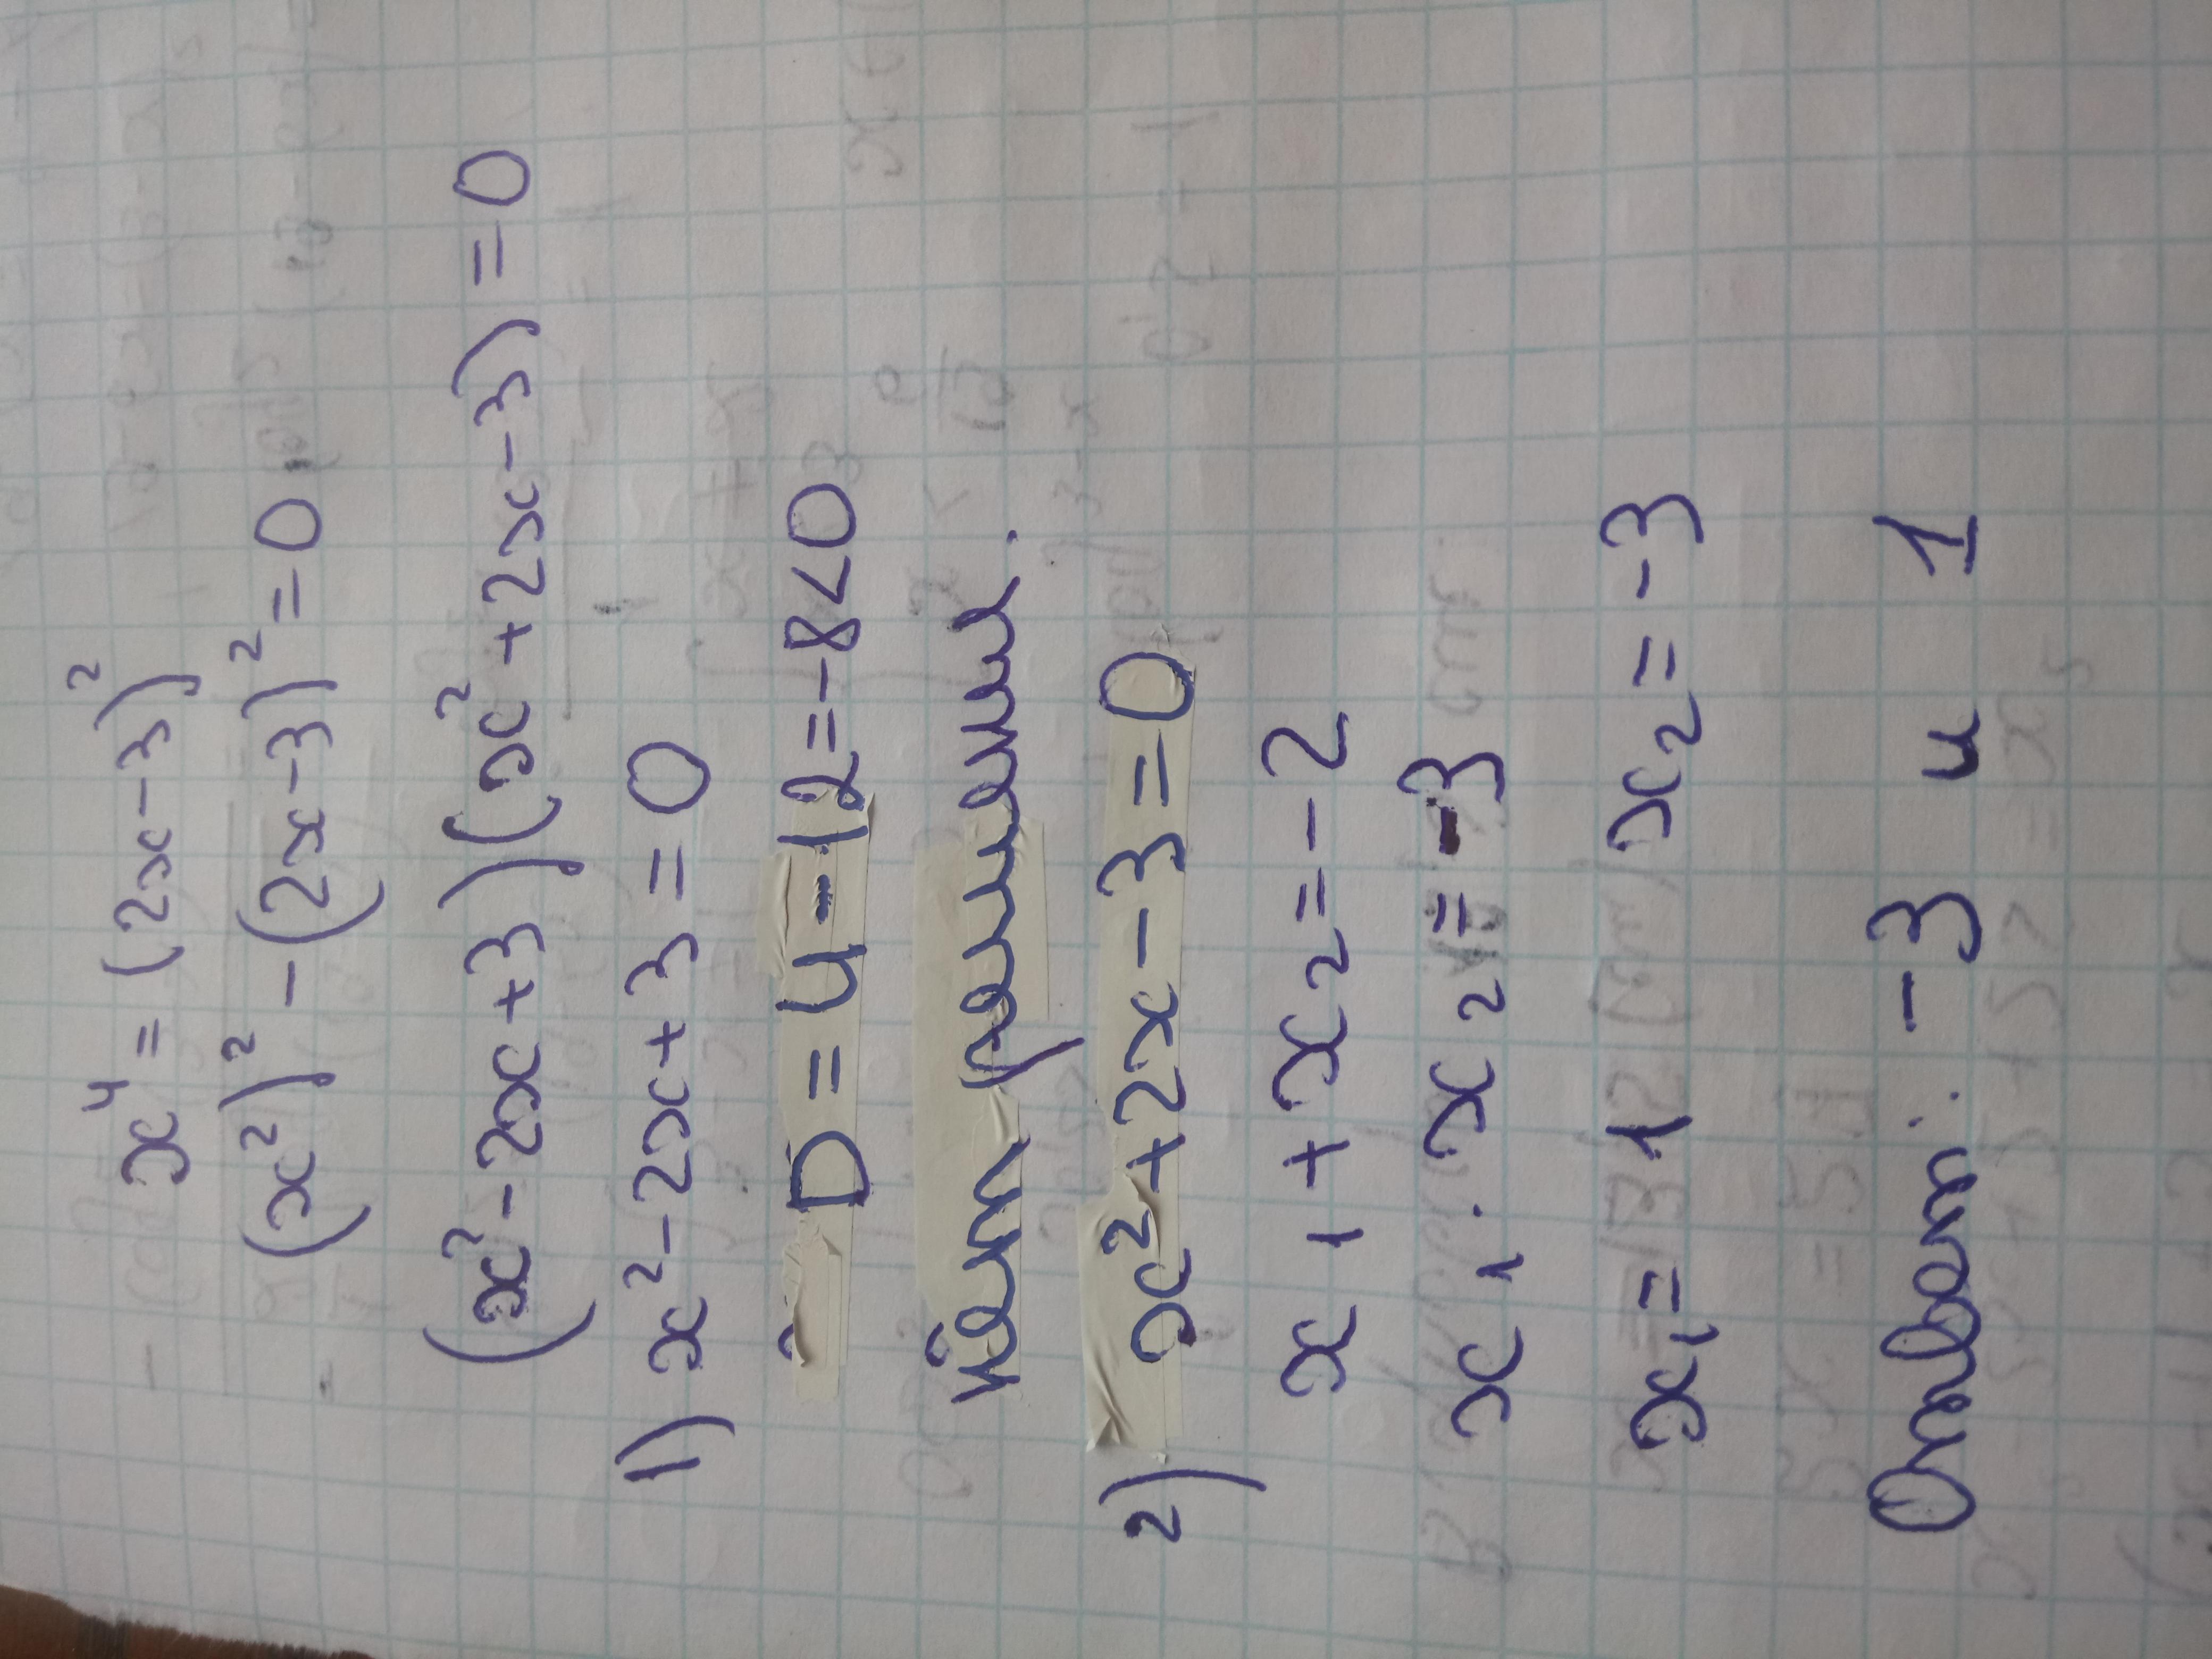 x⁴ = (2x-3)²
(x²)² - (2x-3)² = 0
(x² - 2x + 3)(x² + 2x - 3) = 0
1) x² - 2x + 3 = 0
D = 4 - 12 = -8 < 0
нет решений.
2) x² + 2x - 3 = 0
x₁ + x₂ = -2
x₁ · x₂ = -3
x₁ = 1 x₂ = -3
Ответ: -3 и 1